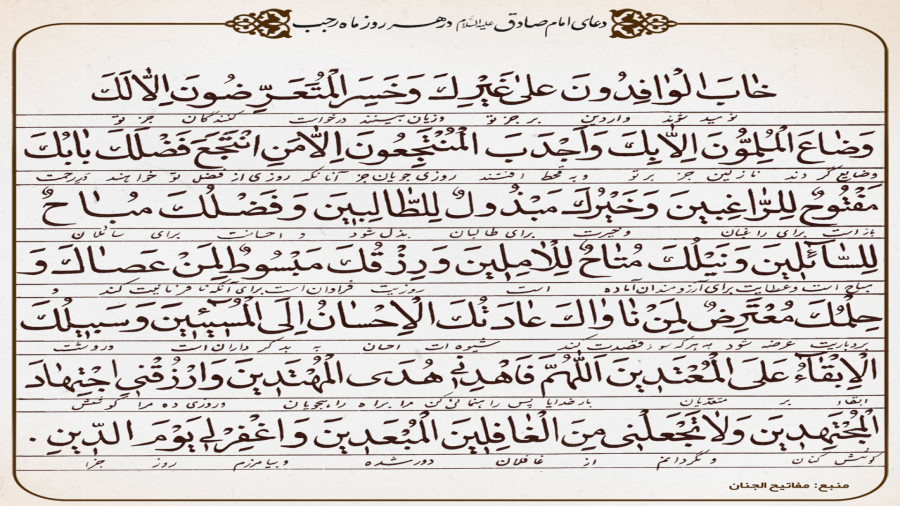 دعای امام صادق علیه‌السلام در هر روز ماه رجب
خٰابَ الْوٰافِدُونَ عَلىٰ غَيْرِكَ وَخَسِرَ الْمُتَعَرِّضُونَ اِلّٰا لَكَ
نومید شوند واردین بر جز تو وزیان بینند درخواست کنندگان جز تو
وَضٰاعَ الْمُلِمُّونَ اِلّٰا بِكَ وَاَجْدَبَ الْمُنْتَجِعُونَ اِلّٰا مَنِ انْتَجَعَ فَضْلَكَ بٰابُكَ
وضایع گردند نازلین جز برتو وبه قحط افتند روزی جویان جز آنانکه روزی از فضل تو خواهند درت
مَفْتُوحٌ لِلرّٰاغِبينَ وَخَيْرُكَ مَبْذُولٌ لِلطّٰالِبينَ وَفَضْلُكَ مُبٰاحٌ
باز است برای راغبان وخیرت برای طالبان بذل شود و احسانت برای سائلان
لِلسّٰآئِلينَ وَنَيْلُكَ مُتٰاحٌ لِلْاٰمِلينَ وَرِزْقُكَ مَبْسُوطٌ لِمَنْ عَصٰاكَ وَ
مباح است وعطایت برای آرزومندان آماده است روزیت فراوان است برای آنکه نافرمانیت کند و
حِلْمُكَ مُعْتَرِضٌ لِمَنْ نٰاوٰاكَ عٰادَتُكَ الْاِحْسٰانُ اِلَى الْمُسيٓئينَ وَسَبيلُكَ
بردباریت عرضه شود به هرکه سوء قصدت کند شیوه ات احسان به بدکرداران است وروشت
الْاِبْقٰٓاءُ عَلَى الْمُعْتَدينَ اَللّٰهُمَّ فَاهْدِنى هُدَى الْمُهْتَدينَ وَارْزُقْنِى اجْتِهٰادَ
ابقاء بر متعدّیان بارخدایا پس راهنمائی کن مرا براه راه‌جویان وروزی ده مرا کوشش
الْمُجْتَهِدينَ وَلاٰ تَجْعَلْنى مِنَ الْغٰافِلينَ الْمُبْعَدينَ وَاغْفِرْلى يَوْمَ الدّينِ .
کوشش کنان ومگردانم از غافلان دورشده وبیامرزم روز جزا
منبع: مفاتیح الجنان